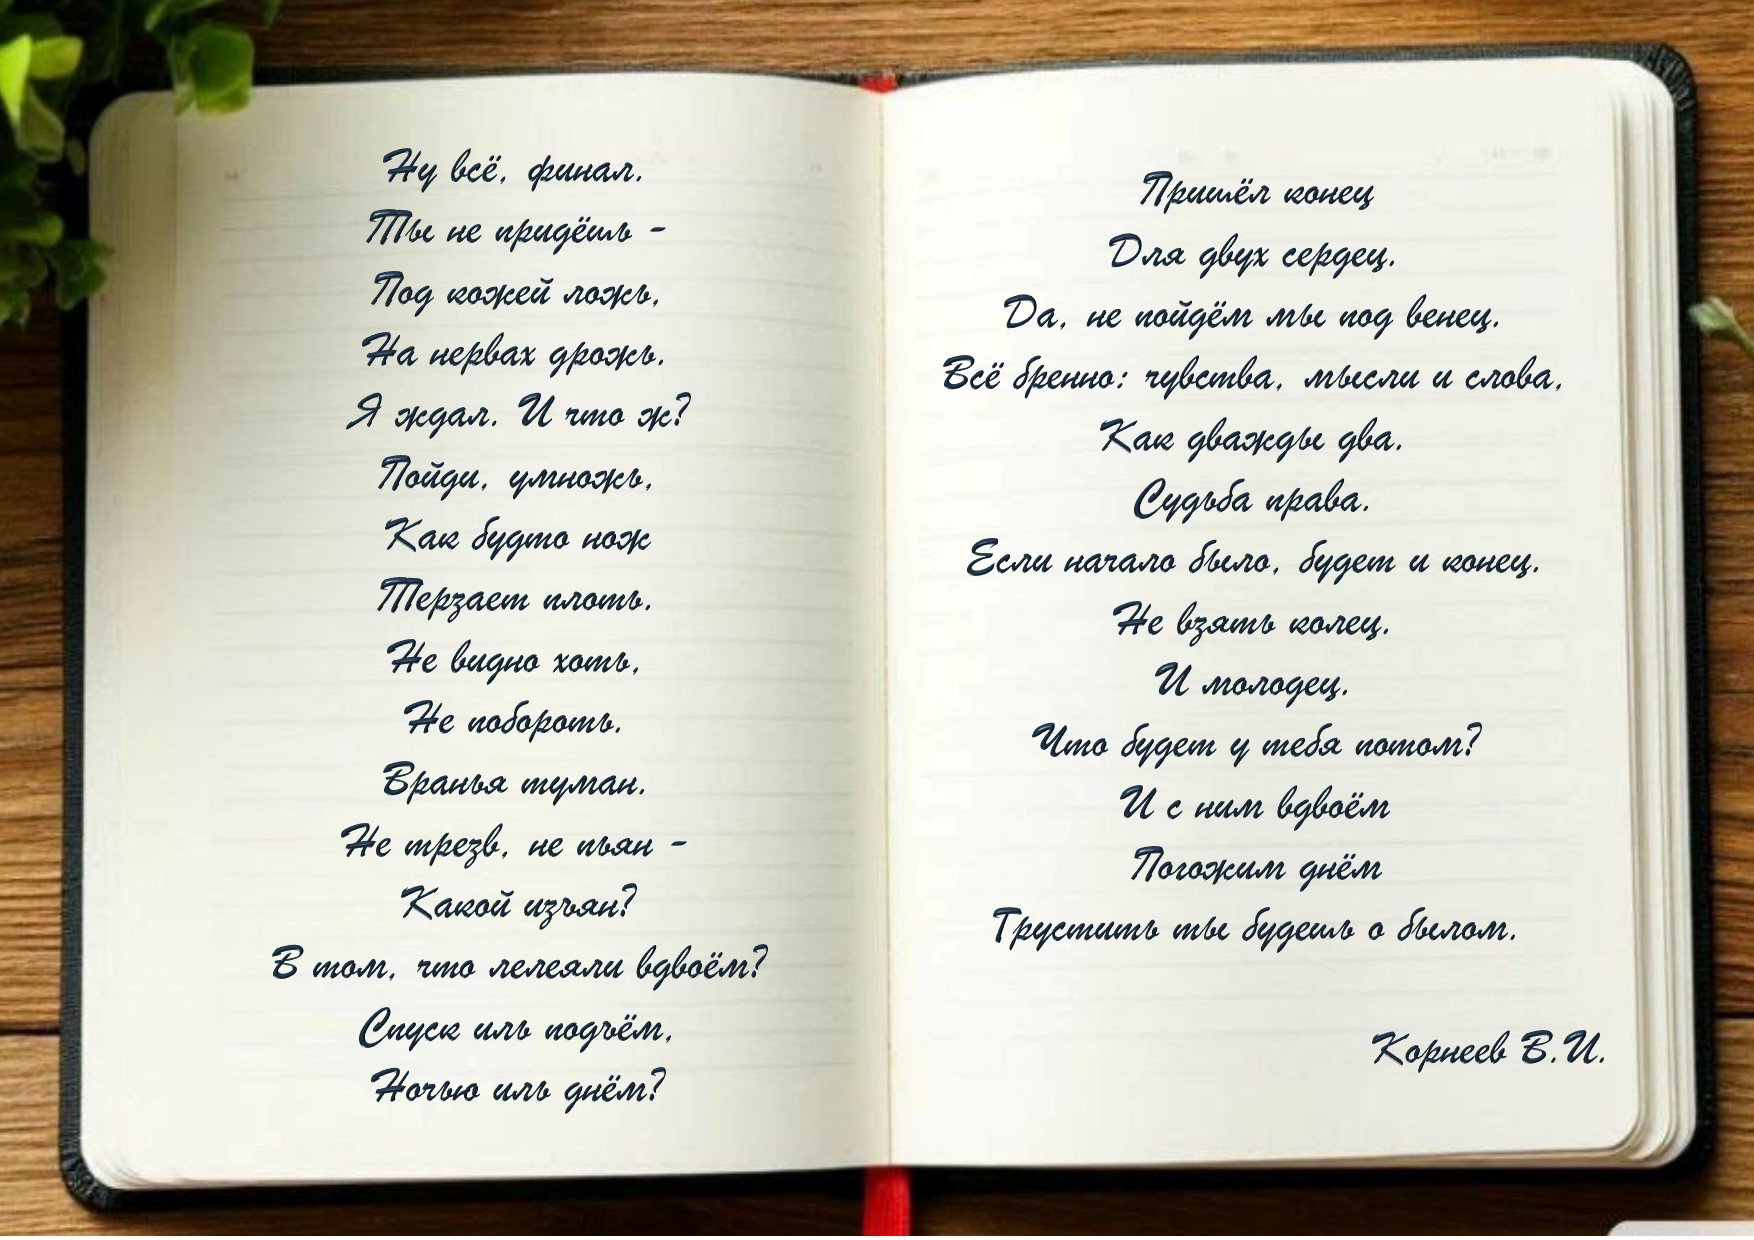 Ну всё, финал.
Ты не придёшь -
Под кожей ложь,
На нервах дрожь.
Я ждал. И что ж?
Пойди, умножь,
Как будто нож
Терзает плоть.
Не видно хоть,
Не побороть.
Вранья туман.
Не трезв, не пьян -
Какой изъян?
В том, что лелеяли вдвоём?
Спуск иль подъём,
Ночью иль днём?
Пришёл конец
Для двух сердец.
Да, не пойдём мы под венец.
Всё бренно: чувства, мысли и слова,
Как дважды два.
Судьба права.
Если начало было, будет и конец.
Не взять колец.
И молодец.
Что будет у тебя потом?
И с ним вдвоём
Погожим днём
Грустить ты будешь о былом.
Корнеев В.И.